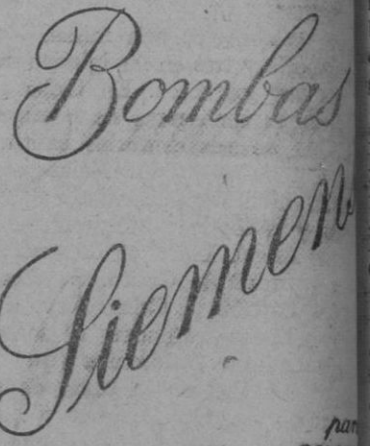 Bombas
Siemen
par